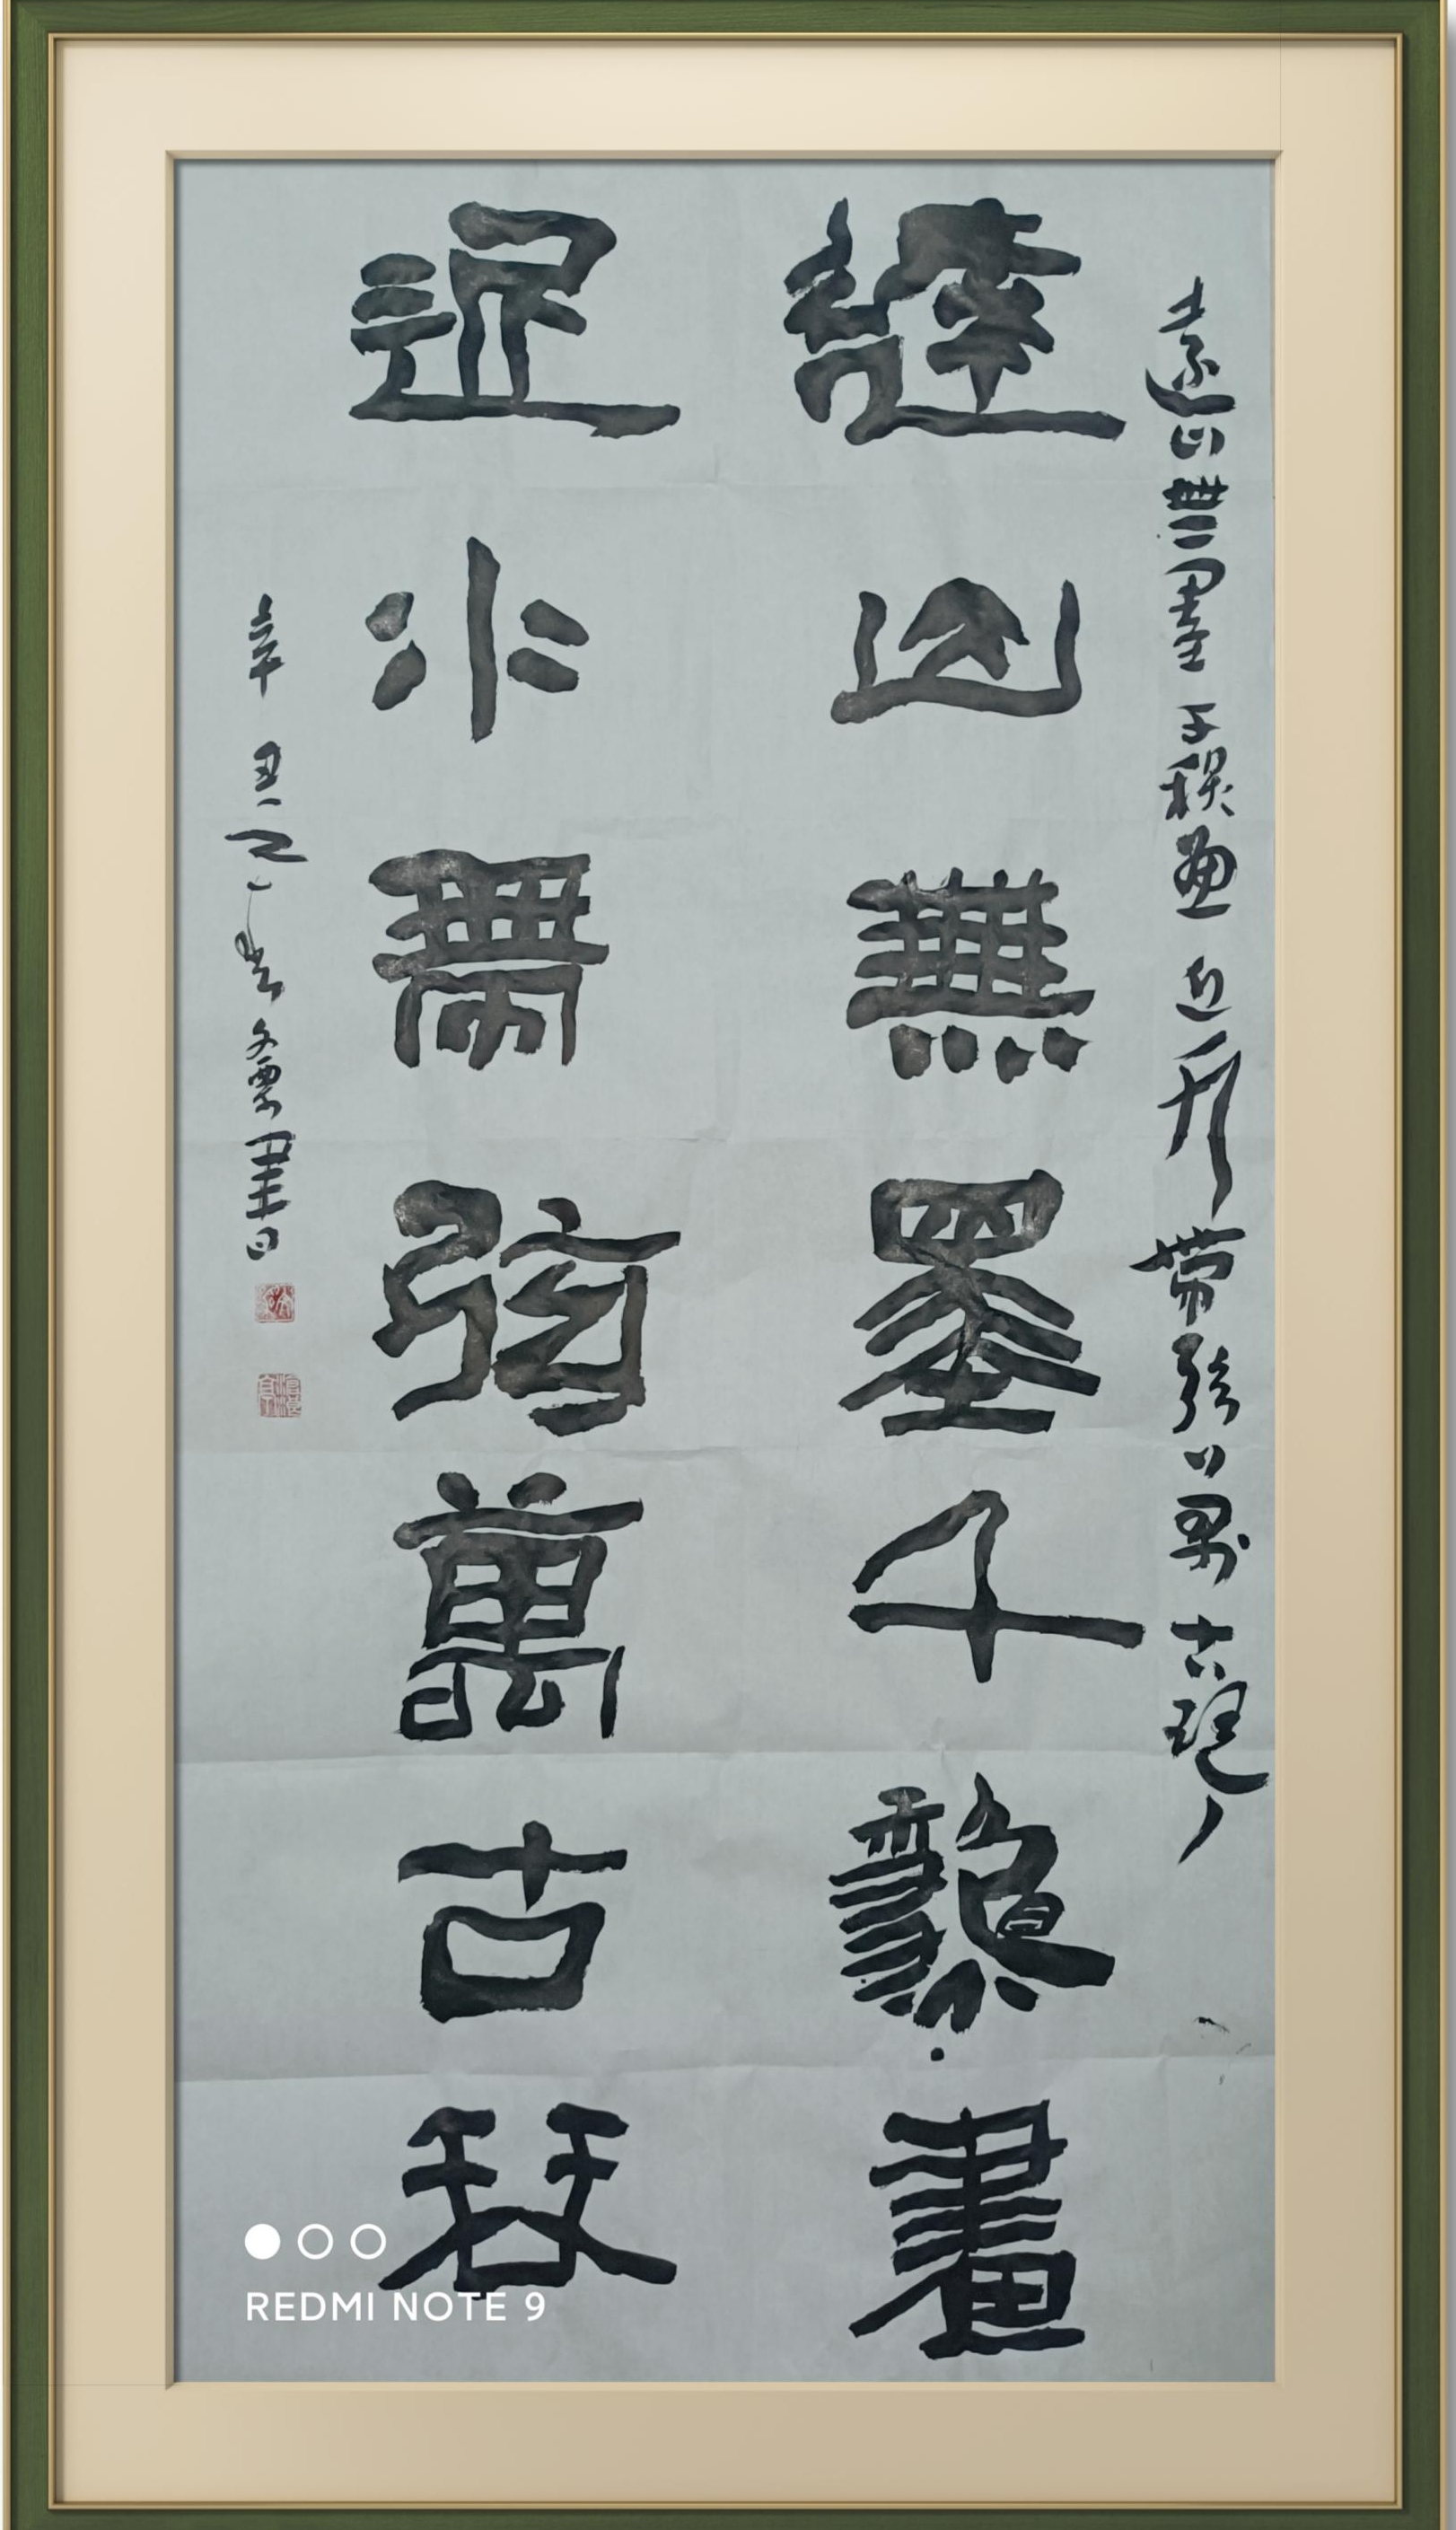 遠山無墨千秋畫近水帶弦萬古琴
遠山無墨千秋畫
近水帶弦萬古琴
辛丑之春 書
REDMI NOTE 9